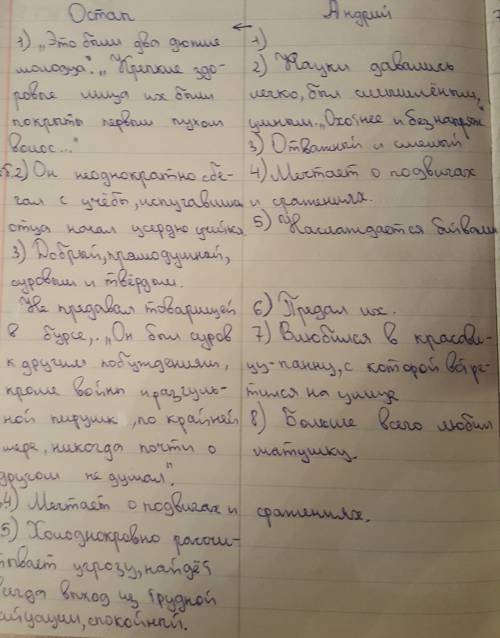 Остап
1) „Это были два дюжие
молодца". „Крепкие здо-
ровые лица их были
покрыты первым пухом
волос..."
2) Он неоднократно сбе-
гал с учёбы, испугавшись
отца начал усердно учиться
3) Добрый, прямодушный,
суровым и твёрдым.
Не предавал товарищей
в бурсе,. „Он был суров
к другим побуждениям,
кроме войны и разгуль-
ной пирушк, по крайней
мере, никогда почти о
другом не думал".
4) Мечтает о подвигах и сражениях.
5) Хладнокровно рассчи-
тывает угрозу, найдёт
всегда выход из трудной
ситуации, спокойный.
Андрий
1)
2) Науки давались
легко, был смышлённым,
умным. „Охотнее и без напряж"
3) Отважный и смелый
4) Мечтает о подвигах
и сражениях.
5) Наслаждается битвами
6) Предал их.
7) Влюбился в красави-
цу-панну, с которой встре-
тился на улице
8) Больше всего любил
матушку.